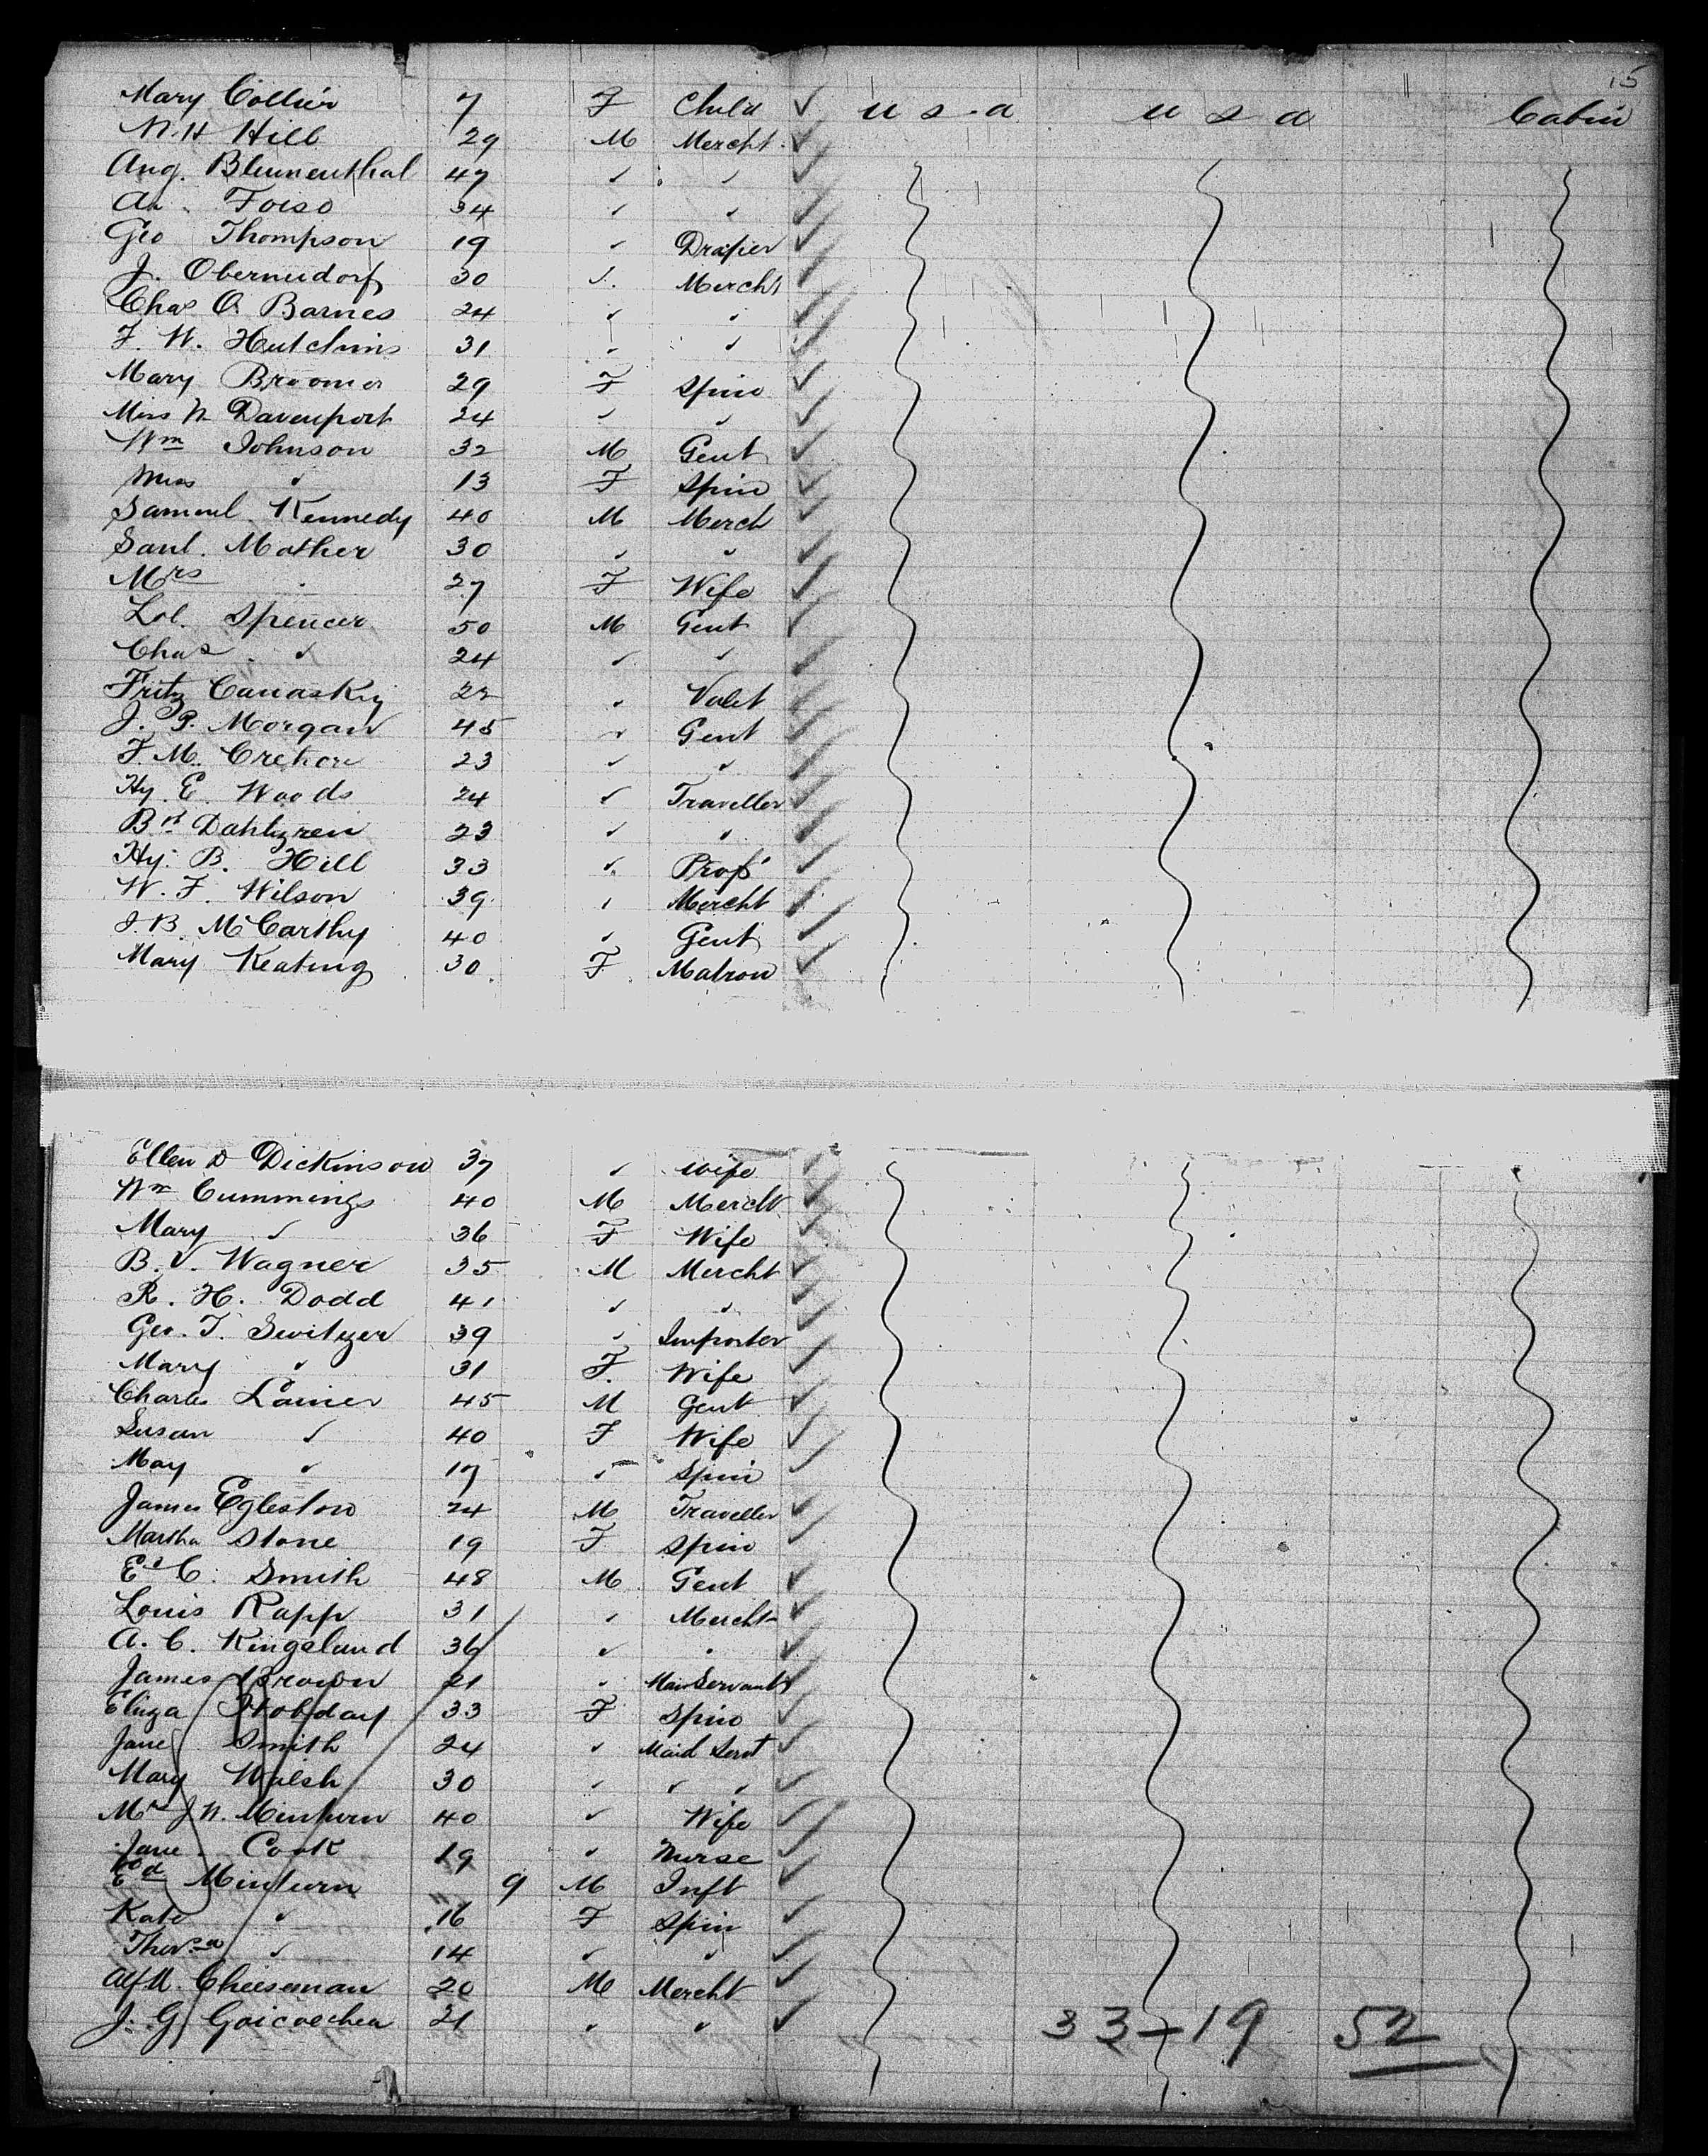 15
Mary Collier 7 F Child ✓ U S. A U S A Cabin
N. H Hill 29 M Mercht. ✓
Aug. Blumenthal 47 ✓ ✓ ✓
Au. Foiso 34 ✓ ✓ ✓
Geo Thompson 19 ✓ Drapier ✓
J. Obernudorf 30 ✓ Mercht ✓
Chas O. Barnes 24 ✓ ✓ ✓
F. W. Hutchins 31 ✓ ✓ ✓
Mary Broomer 29 F Spin ✓
Miss N Davenport 24 ✓ ✓ ✓
Wm Johnson 32 M Gent ✓
Miss ✓ 13 F Spin ✓
Samuel Kennedy 40 M Merch ✓
Saml. Mather 30 ✓ ✓ ✓
Mrs 27 F Wife ✓
Lol. Spencer 50 M Gent ✓
Chas ✓ 24 ✓ ✓ ✓
Fritz 22 ✓ Valet ✓
J. P. Morgan 45 ✓ Gent ✓
F. M. 23 ✓ ✓ ✓
Hy. E. Woods 24 ✓ Traveller ✓
Bd Dahlgren 23 ✓ ✓ ✓
Hy. B. Hill 33 ✓ Prof ✓
W. F. Wilson 39 ✓ Mercht ✓
J. B. McCarthy 40 ✓ Gent ✓
Mary Keating 30. F. Matron ✓
Ellen D Dickinson 37 ✓ Wife ✓
Wm Cummings 40 M Mercht ✓
Mary ✓ 36 F Wife ✓
B. V. Wagner 35 M Mercht ✓
R. H. Dodd 41 ✓ ✓ ✓
Geo. T. Switzer 39 ✓ Importer ✓
Mary ✓ 31 F. Wife ✓
Charles Lanier 45 M Gent ✓
Susan ✓ 40 F Wife ✓
May ✓ 17 ✓ Spin ✓
James Egleston 24 M Traveller ✓
Martha Stone 19 F Spin ✓
Ed C. Smith 48 M Gent ✓
Louis Rapp 31 ✓ Mercht ✓
A. C. Kingsland 36 ✓ ✓ ✓
James Brown 21 ✓ Man Servant ✓
Eliza Hobday 33 F Spin ✓
Jane Smith 24 ✓ Maid Servt ✓
Mary Walsh 30 ✓ ✓ ✓ ✓
Mrs J. W. Minturn 40 ✓ Wife ✓
Jane Cook 19 ✓ Nurse ✓
Ed Minturn 9 M Inft ✓
Kate ✓ 16 F Spin ✓
✓ 14 ✓ ✓ ✓
Alf M. Cheeseman 20 M Mercht ✓
J. G. Goicoechea 21 ✓ ✓ ✓
33-19 52